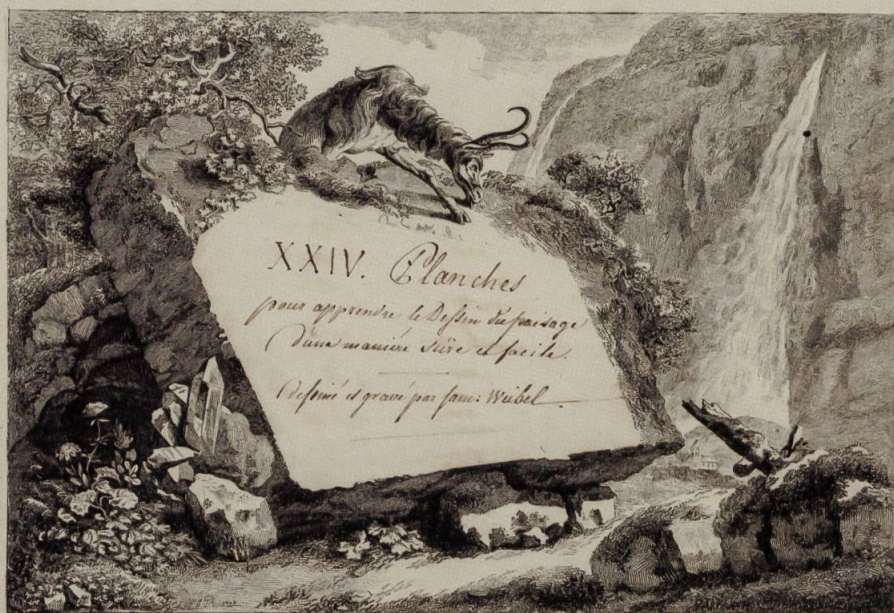 XXIV. Planches
pour apprendre le Dessin du paisage
d'une manière sûre et facile.
Dessiné et gravé par Sam: Weibel